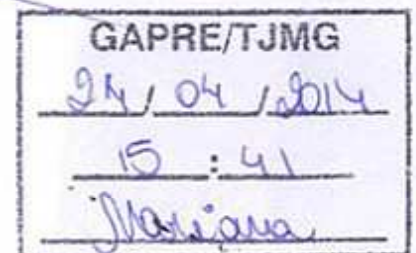 GAPRE/TJMG
24 / 04 / 2014
15 : 41
Mariana